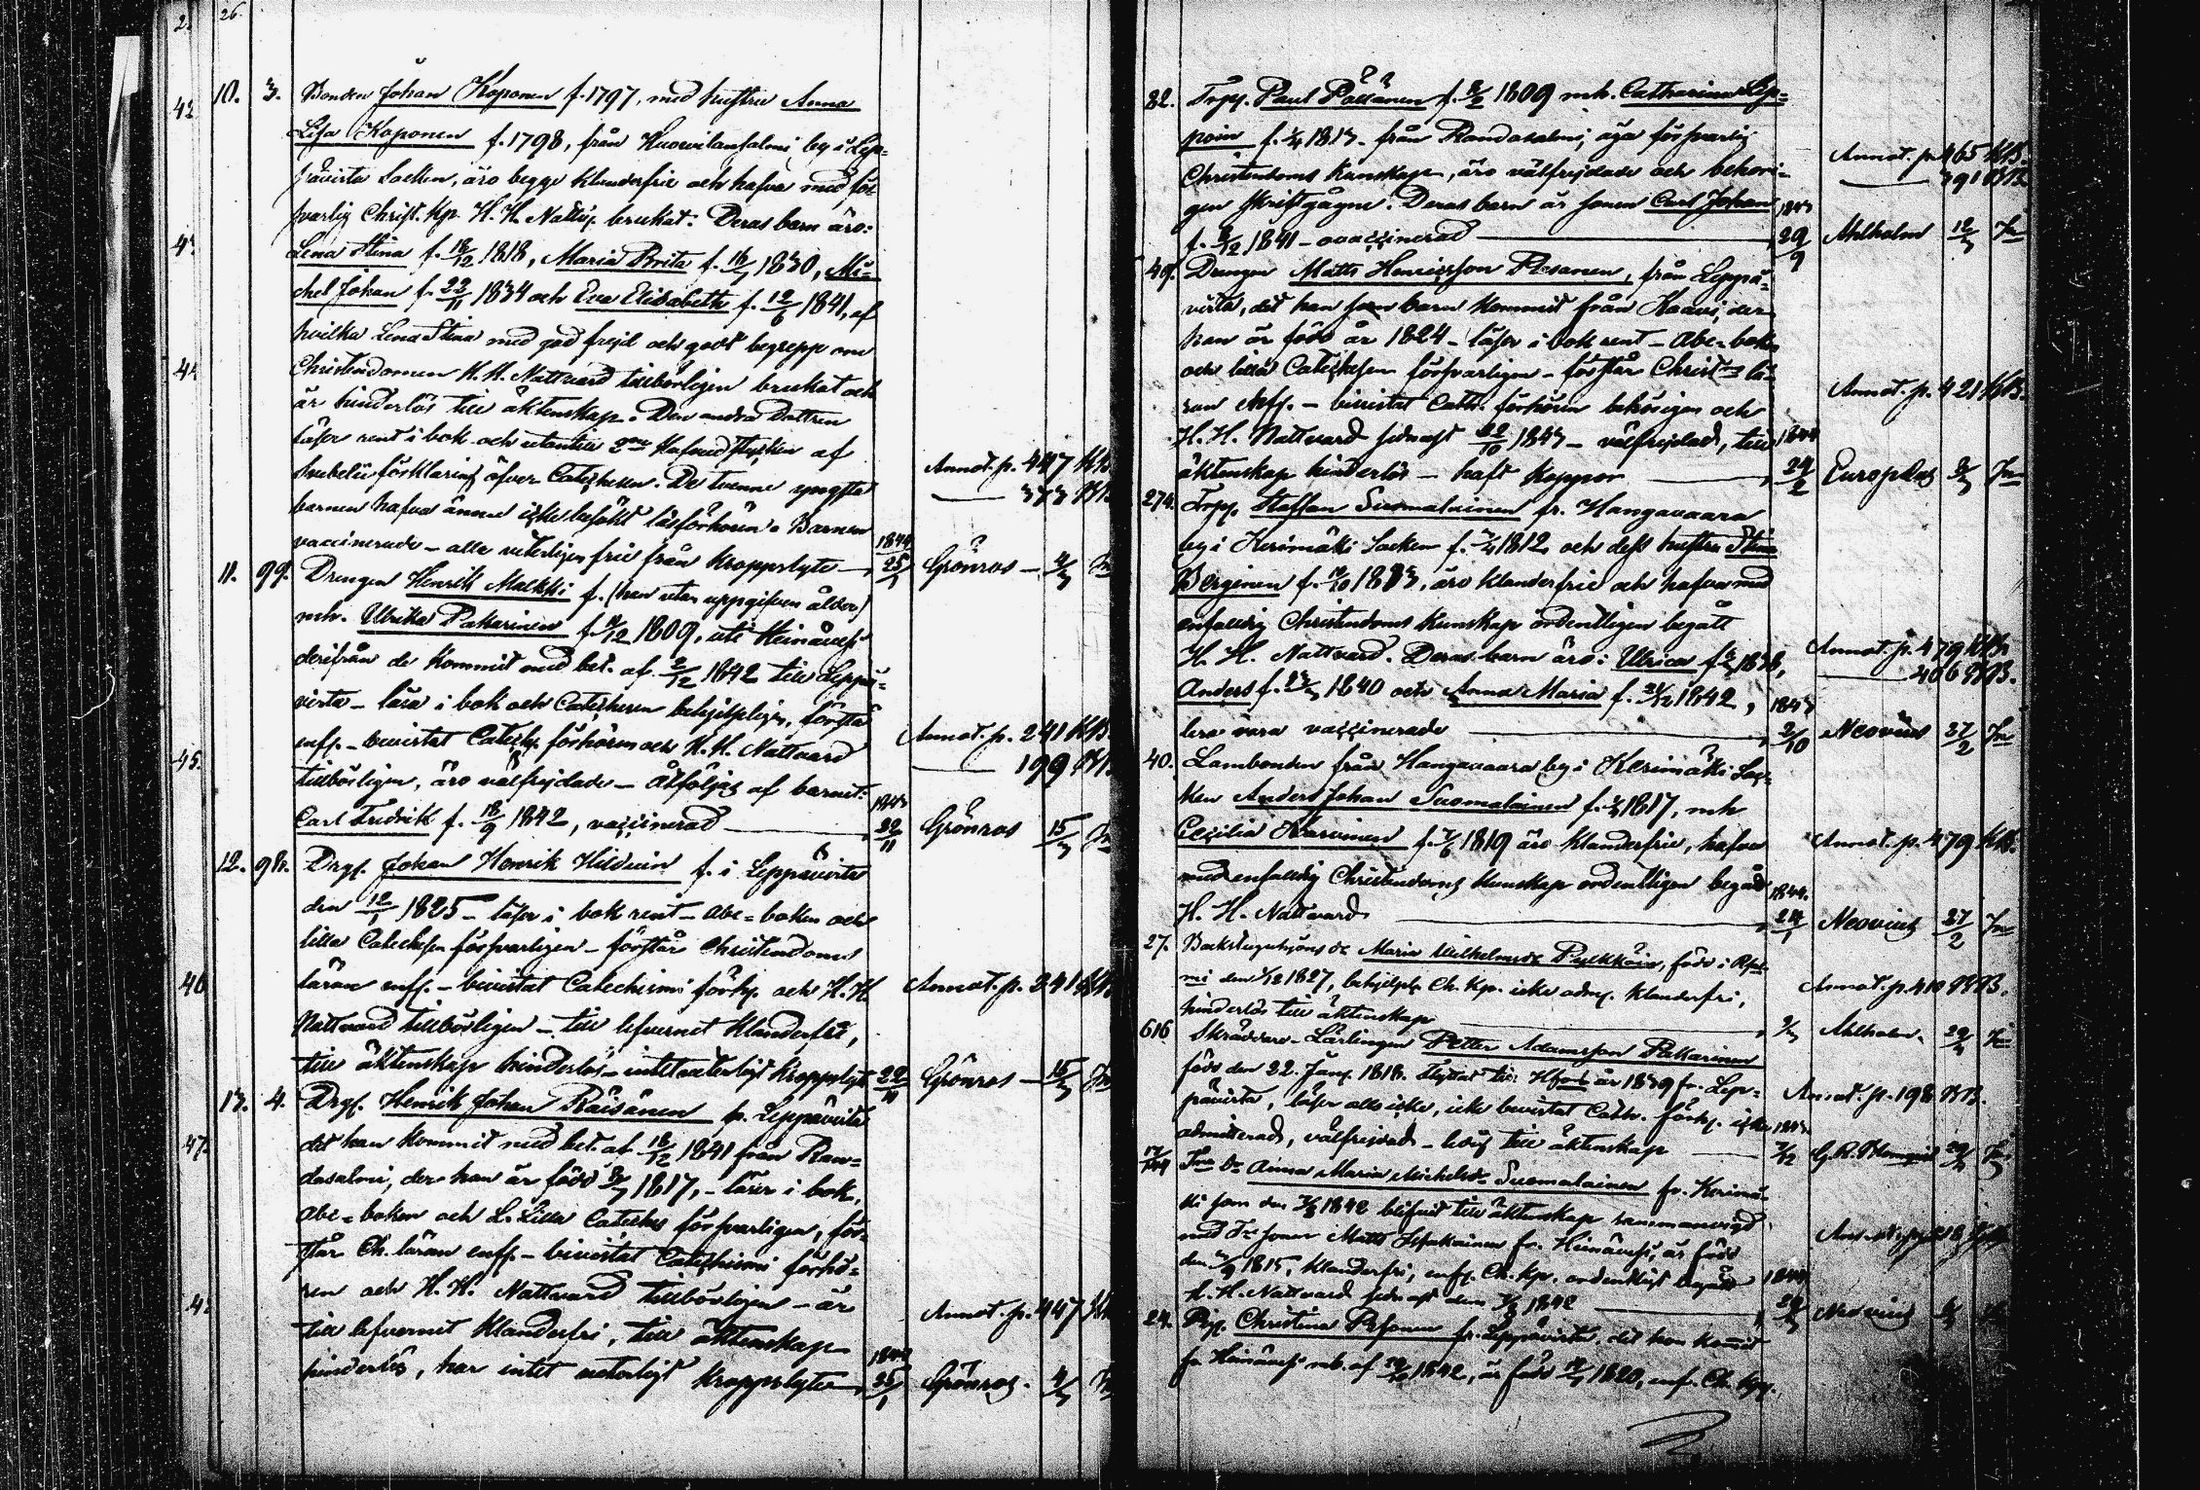 26.
10. 3. Bonden Johan Koponen f. 1797, med hustru Anna
Lisa Koponen f. 1798, från Kuorvilansalmi by i Lep-
pävirta Socken, äro begge klanderfrie och hafva med för
svarlig Christ. Kp. H. H. Nattv. brukat: Deras barn äro:
Lena Stina f. 18/12 1818, Maria Brita f. 1830, Mi-
chel Johan f. 22/11 1834 och Eva Elisabeth f. 12/6 1841, af
hvilka Lena Stina med god frejd och godt begrepp om
Christendomen H. H. Nattvard tillbörligen brukat och
är hinderlös till äktenskap. Den andra Dottren
läser rent i bok och utantill 2ne Hufvudstycken af
Svebelii förklaring öfver Catechesen. De tvenne yngsta
barnen hafva ännu icke besökt läsförhören. Barnen
vaccinerade – alla veterligen frie från kroppslyte
Annot. p. 447 KB.
373
1844 25/1 Grönros – 4/3
11. 99. Drengen Henrik Malkki f. (han utan uppgifven ålder)
mh. Ulrika Pakarinen f. 9/12 1809, uti Heinävesi
derifrån de kommit med bet. af 2/12 1842 till Leppä-
virta – läsa i bok och Catechesen behjelpligen, förstå
enf. – bevistat Catech. förhören och H. H. Nattvard
tillbörligen, äro välfrejdade – åtföljas af barnet:
Carl Fredrik f. 18/9 1842, vaccinerad
Annot. p. 241 KB.
199
1843 22/11 Grönros 15/3
12. 98. Drg. Johan Henrik Hilduin f. i Leppävirta
den 12/1 1825 – läser i bok rent – abc-boken och
lilla Catechesen försvarligen – förstår Christendoms
läran enf. – bevistat Catechismi förhp. och H. H.
Nattvard tillbörligen – till lefvernet klanderfri,
till äktenskap hinderlös – intet veterligt kroppslyte
Annot. p. 241 KB.
22/11 Grönros – 15/3
13. 4. Drg. Henrik Johan Räisänen fr. Leppävirta
dit han kommit med bet. af 18/12 1841 från Ran-
dasalmi, der han är född 1817, – läser i bok,
abc-boken och L. Lilla Cateches försvarligen, för-
står Ch. läran enf. – bevistat Catechismi förhö-
ren och H. H. Nattvard tillbörligen – är
till lefvernet klanderfri, till äktenskap
hinderlös, har intet veterligt kroppslyte
Annot. p. 447
1844 25/1 Grönros. 4/3
82. Torp. Paul Pöllänen f. 1809 mh. Catharina Lep-
poin f. 1813 från Randasalmi; äga försvarlig
Christendoms kunskap, äro välfrejdade och behöri-
gen skriftgågne. Deras barn är sonen Carl Johan
f. 8/12 1841 – ovaccinerad
Annot. p. 465 KB.
391
1843 29/9 Ahlholm 12/3
49. Drengen Matts Henricsson Pesanen, från Leppä-
virta, dit han som barn kommit från Kaavi, der
han är född år 1824 – läser i bok rent – Abc-boken
och lilla Catechesen försvarligen – förstår Christ. lä-
ran enf. – bevistat Cath. förhören behörigen och
H. H. Nattvard sednast 22/10 1843 – välfrejdad, till
äktenskap hinderlös – haft koppor
Annot. p. 421 KB.
1844 24/2 Europæus
274. Torp. Staffan Suomalainen fr. Hangavaara
by i Kerimäki Socken f. 1812 och dess hustru Stina
Berginen f. 1813, äro klanderfrie och hafva med
enfaldig Christendoms kunskap ordentligen begått
H. H. Nattvard. Deras barn äro: Ulrica f. 1838,
Anders f. 1840 och Anna Maria f. 1842,
lära vara vaccinerade
Annot. p. 479 KB.
406
1843 2/10 Neovius 27/2
40. Lambonden från Hangavaara by i Kerimäki Soc-
ken Anders Johan Suomalainen f. 1817, mh
Cecilia Karvinen f. 1819 äro klanderfrie, hafva
med enfaldig Christendoms kunskap ordentligen begått
H. H. Nattvard
Annot. p. 479 KB.
1844. 24/1 Neovius 27/2
27. Backstuguhjons dr. Maria Wilhelmsdr Pylkkäin, född i
den 1827, behjelpl. Ch. Kp. icke adm. klanderfri,
hinderlös till äktenskap
Annot. p. 410
Ahlholm.
616 Skräddare-Lärlingen Petter Adamsson Pakarinen
född den 22. Janp. 1818. flyttat till år 1839 fr. Lep-
pävirta, läser alls icke, icke bevistat Cath. förhp. icke
admitterad, välfrejdad – ledig till äktenskap
Annot. p. 198
1843
Dr. Anna Maria Michelsdr Suomalainen fr. Kerimä-
ki som den 1842 blifvit till äktenskap sammanvigd
med Matts fr. Heinävesi, är född
den 1815, klanderfri, enf. Ch. Kp. ordentligt begått
H. H. Nattvard sednast den 1842
1844 Neovius
24. Pig. Christina Pesonen fr. Leppävirta, dit hon kommit
fr. Heinävesi mb. af 1842, är född 1820, enf. Ch. Kp.